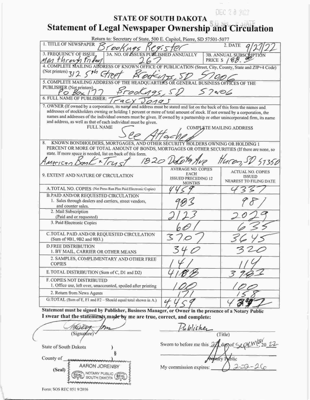 STATE OF SOUTH DAKOTA
Statement of Legal Newspaper Ownership and Circulation
Return to: Secretary of State, 500 E. Capitol, Pierre, SD 57501-5077
1. TITLE OF NEWSPAPER Brookings Register 2. DATE 9/27/22
3. FREQUENCY OF ISSUE 3A. NO. OF ISSUES PUBLISHED ANNUALLY 3B. ANNUAL SUBSCRIPTION
Mon through Friday 267 PRICE $
4. COMPLETE MAILING ADDRESS OF KNOWN OFFICE OF PUBLICATION (Street, City, County, State and ZIP+4 Code)
(Not printers) Brookings, SD 57006
5. COMPLETE MAILING ADDRESS OF THE HEADQUARTERS OR GENERAL BUSINESS OFFICES OF THE
PUBLISHER (Not printers)
PO Box 177 Brookings, SD 57006
6. FULL NAME OF PUBLISHER:
7. OWNER (If owned by a corporation, its name and address must be stated and list on the back of this form the names and
addresses of stockholders owning or holding 1 percent or more of total amount of stock. If not owned by a corporation, the
names and addresses of the individual owners must be given. If owned by a partnership or other unincorporated firm, its name
and address, as well as that of each individual must be given.
FULL NAME COMPLETE MAILING ADDRESS
See Attached
8. KNOWN BONDHOLDERS, MORTGAGES, AND OTHER SECURITY HOLDERS OWNING OR HOLDING 1
PERCENT OR MORE OF TOTAL AMOUNT OF BONDS, MORTGAGES OR OTHER SECURITIES (If there are none, so
state. If more space is needed, list on back of this form.)
American Bank & Trust 1820 Dakota Ave Huron, SD 57350
9. EXTENT AND NATURE OF CIRCULATION
AVERAGE NO. COPIES EACH ISSUED PRECEDING 12 MONTHS
ACTUAL NO. COPIES ISSUED NEAREST TO FILING DATE
A. TOTAL NO. COPIES 4459 4337
B. PAID AND/OR REQUESTED CIRCULATION
1. Sales through dealers and carriers, street vendors, and counter sales. 983 981
2. Mail Subscription
(Paid and or requested) 2123 2029
3. Paid Electronic Copies 601 635
C. TOTAL PAID AND/OR REQUESTED CIRCULATION
(Sum of 9B1, 9B2 and 9B3.) 3707 3645
D. FREE DISTRIBUTION
1. BY MAIL, CARRIER OR OTHER MEANS 340
2. SAMPLES, COMPLIMENTARY AND OTHER FREE
COPIES 141 114
E. TOTAL DISTRIBUTION (Sum of C, D1 and D2) 4188
F. COPIES NOT DISTRIBUTED
1. Office use, left over, unaccounted, spoiled after printing
2. Return from News Agents
G. TOTAL (Sum of E, F1 and F2 - Should equal item shown in A.) 4459
Statement must be signed by Publisher, Business Manager, or Owner in the presence of a Notary Public
I swear that the statements made by me are true, correct, and complete:
Publisher
(Signature) (Title)
State of South Dakota )
Sworn to before me this September
County of
(Seal) AARON JORENBY
NOTARY PUBLIC
SOUTH DAKOTA
Notary Public
My commission expires: